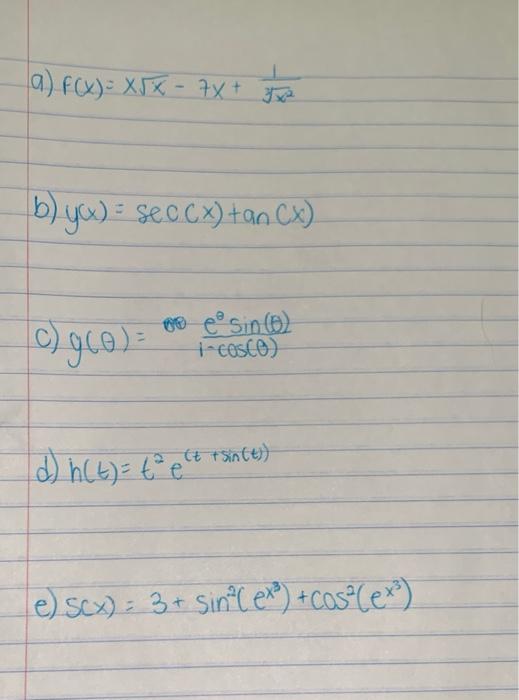 a) f(x) = x√x - 7x + 1/∛x²
b) y(x) = sec(x) tan(x)
c) g(θ) = e^θ sin(θ) / 1-cos(θ)
d) h(t) = t² e^(t + sin(t))
e) s(x) = 3 + sin²(e^x³) + cos²(e^x³)